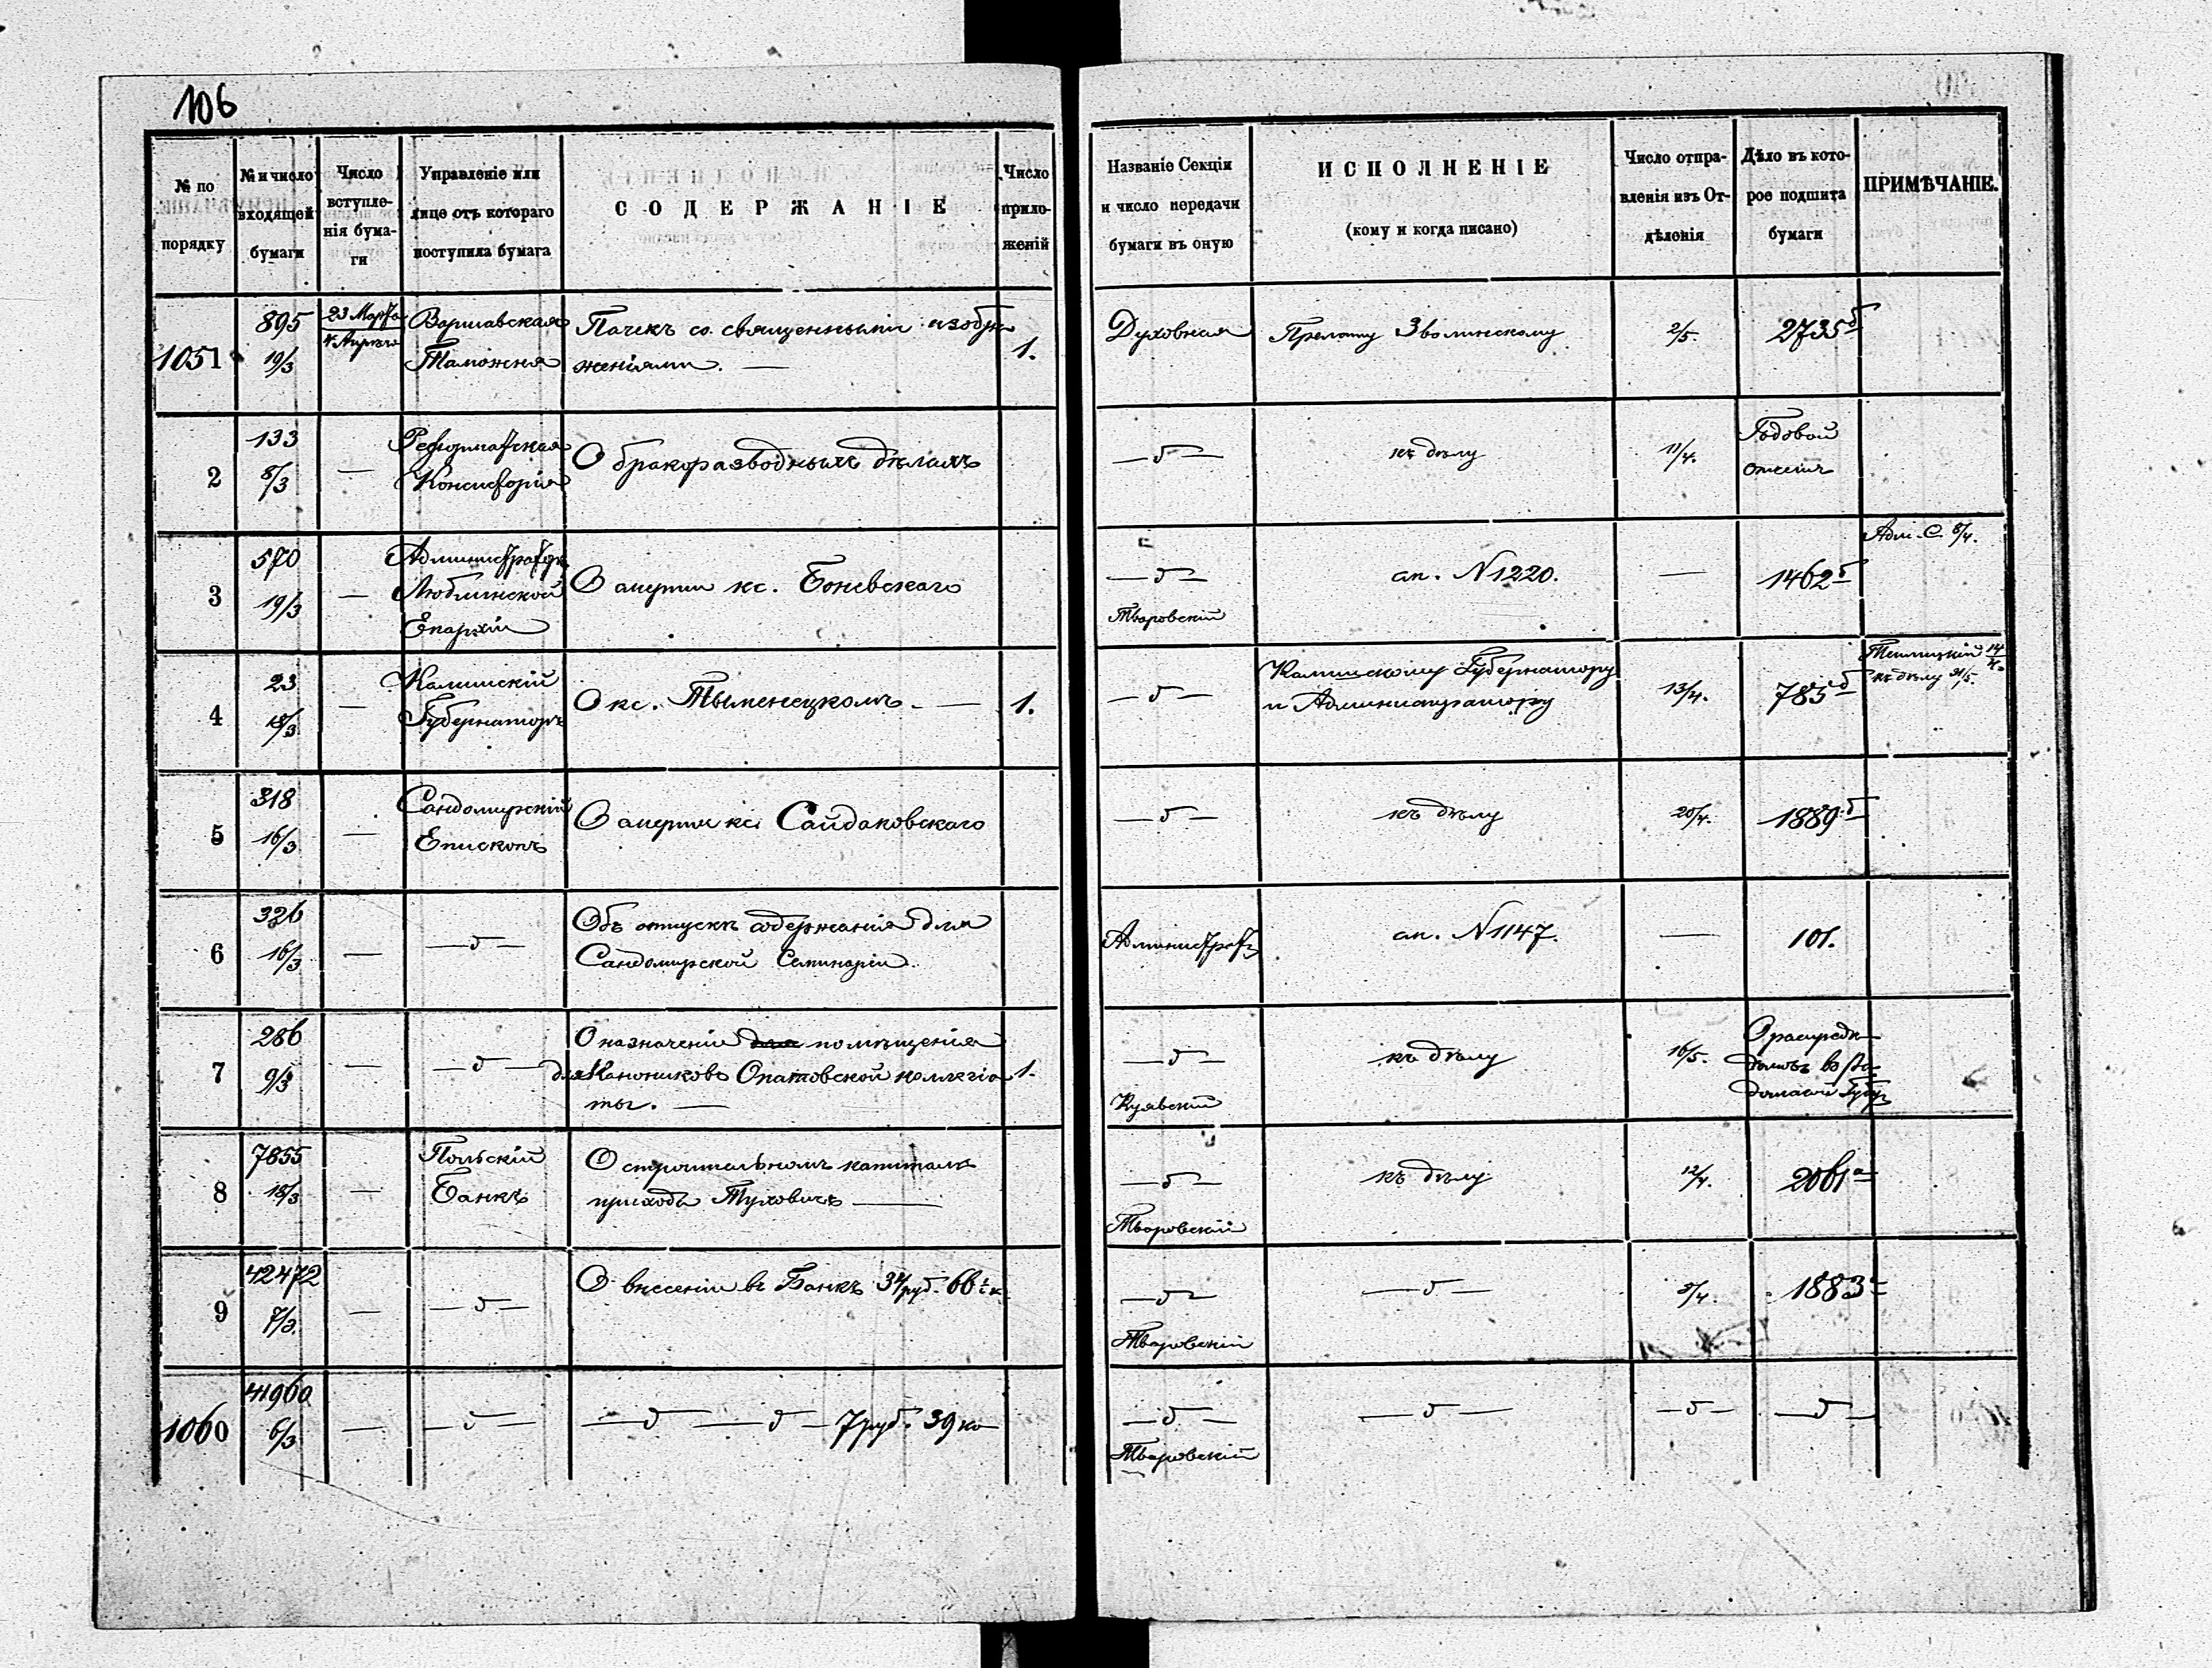 106
№ по порядку
№ и число входящей бумаги
Число вступленія бумаги
Управленіе или лице отъ котораго поступила бумага
СОДЕРЖАНІЕ
Число приложеній
Названіе Секціи и число передачи бумаги въ оную
ИСПОЛНЕНІЕ
(кому и когда писано)
Число отправленія изъ Отдѣленія
Дѣло въ которое подшита бумаги
ПРИМѢЧАНІЕ.
1051
895
19/3
23 Марта
4 Апрѣля
Варшавская
Таможня
Пачекъ со священными изобра
женіями. —
1.
Духовная
Прелату Зволинскому
2/5.
2735 б
2
133
8/3
—
Реформатская
Консисторія
О бракоразводныхъ дѣлахъ
— д —
къ дѣлу
11/4.
Годовой
отчетъ
3
570
19/3
—
Администраторъ
Люблинской
Епархіи
О смерти кс. Боневскаго
— д —
Тваровскій
сп. N 1220.
—
1462 б
Адм. С. 8/4.
4
23
18/3
—
Калишскій
Губернаторъ
О кс. Тыменецкомъ. —
1.
— д —
Калишскому Губернатору
и Администратору
13/4.
785 б
14/4.
къ дѣлу 31/5.
5
318
16/3
—
Сандомирскій
Епископъ
О смерти кс. Сайдаковскаго
— д —
къ дѣлу
20/4.
1889 б
6
326
16/3
—
— д —
Объ отпускѣ содержанія для
Сандомирской Семинаріи.
Администрат
сп. N 1147.
—
101.
7
286
9/3
—
— д —
О назначеніи для помѣщенія
для Канониковъ Опатовской коллегіа
ты. —
1.
— д —
Куявскій
къ дѣлу
16/5.
О распредѣ
домовъ въ Ра
домской Губер
8
7855
18/3
—
Польскій
Банкъ
О строительномъ капиталѣ
прихода Туховичъ —
— д —
Тваровскій
къ дѣлу
12/4.
2061 а
9
42472
7/3.
—
— д —
О внесеніи въ Банкъ 34 руб. 66½ к.
— д —
Тваровскій
— д —
3/4.
1883
1060
41960
6/3
—
— д —
— д — д — 7 руб. 39 ко
— д —
Тваровскій
— д —
— д —
— д —